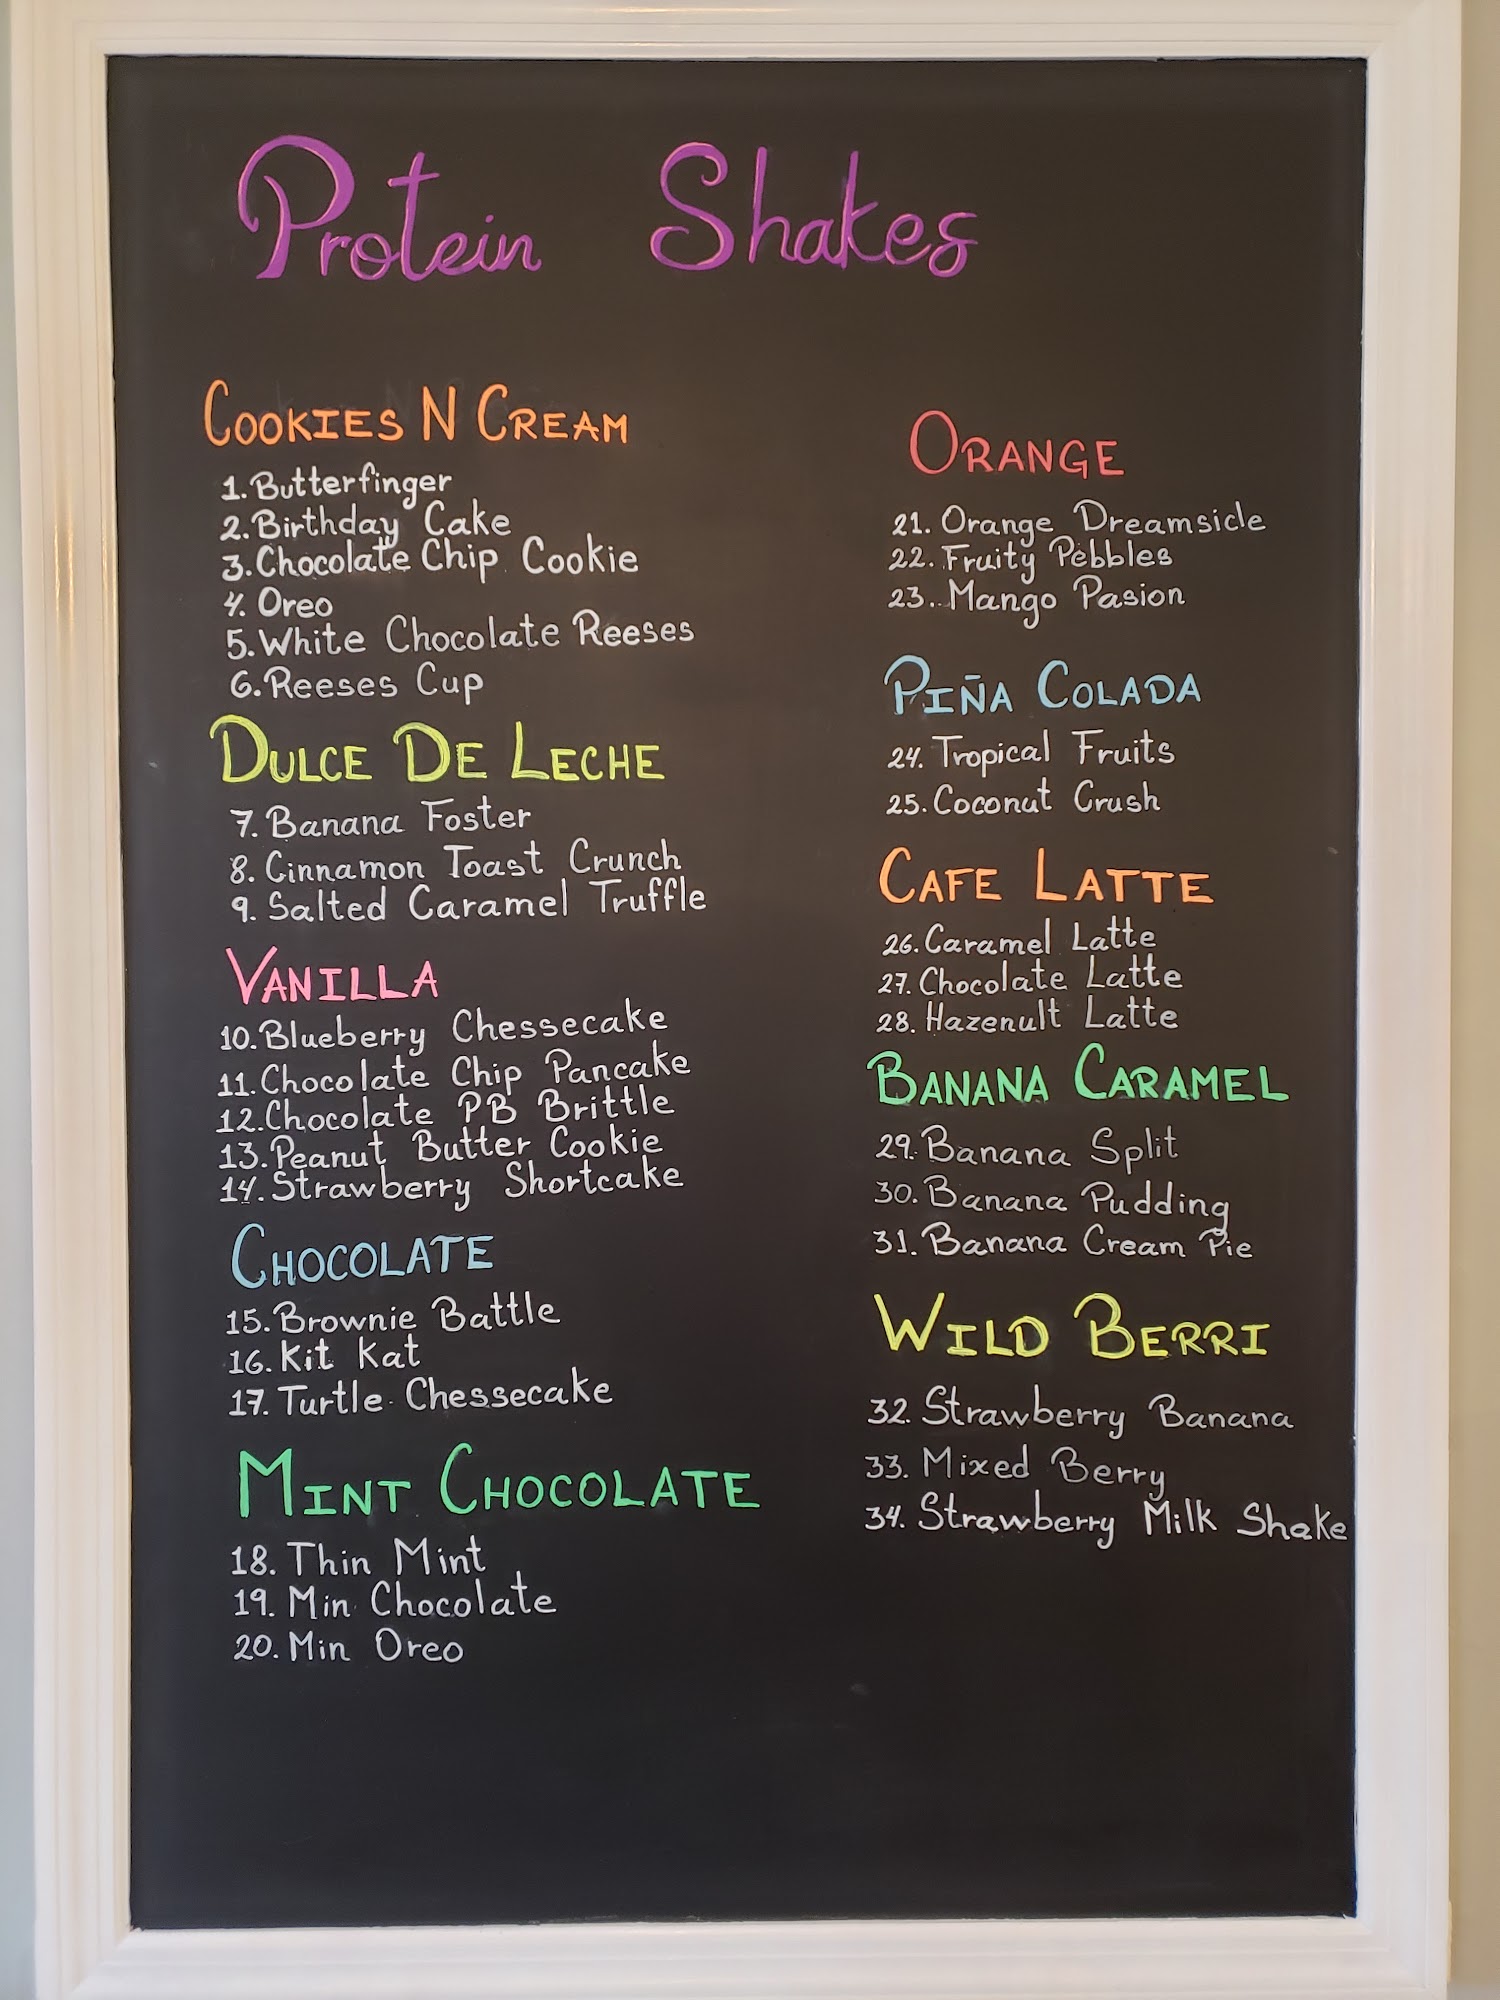 Protein Shakes
COOKIES N CREAM
1. Butterfinger
2. Birthday Cake
3. Chocolate Chip Cookie
4. Oreo
5. White Chocolate Reeses
6. Reeses Cup
DULCE DE LECHE
7. Banana Foster
8. Cinnamon Toast Crunch
9. Salted Caramel Truffle
VANILLA
10. Blueberry Chessecake
11. Chocolate Chip Pancake
12. Chocolate PB Brittle
13. Peanut Butter Cookie
14. Strawberry Shortcake
CHOCOLATE
15. Brownie Battle
16. Kit Kat
17. Turtle Chessecake
MINT CHOCOLATE
18. Thin Mint
19. Min Chocolate
20. Min Oreo
ORANGE
21. Orange Dreamsicle
22. Fruity Pebbles
23. Mango Pasion
PIÑA COLADA
24. Tropical Fruits
25. Coconut Crush
CAFE LATTE
26. Caramel Latte
27. Chocolate Latte
28. Hazenult Latte
BANANA CARAMEL
29. Banana Split
30. Banana Pudding
31. Banana Cream Pie
WILD BERRI
32. Strawberry Banana
33. Mixed Berry
34. Strawberry Milk Shake